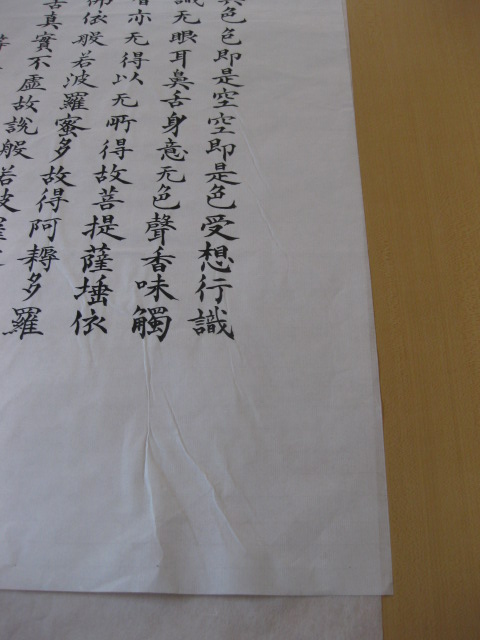 色色即是空空即是色受想行識
識无眼耳鼻舌身意无色聲香味觸
亦无得以无所得故菩提薩埵依
佛依般若波羅蜜多故得阿耨多羅
苦真實不虛故說般若波